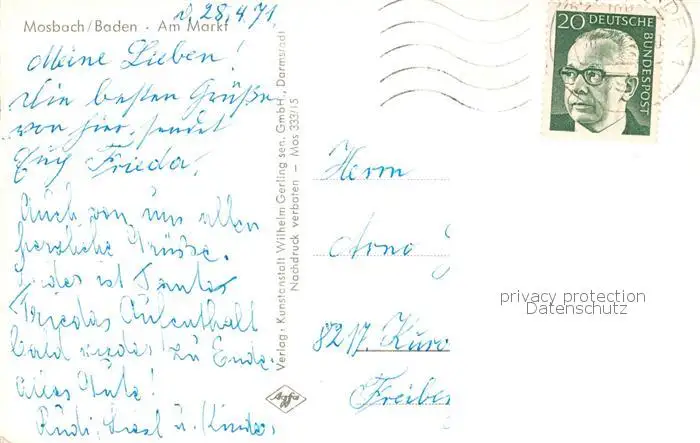 Mosbach/Baden · Am Markt
d. 28.4.71
Meine Lieben!
Die besten Grüße
von hier, sendet
Euch Frieda.
Auch von uns allen
herzliche Grüsse.
ist Tantes
Friedas Aufenthalt
bald wieder zu Ende.
Alles Gute!
Rudi, Liesl u. Kinder,
Verlag: Kunstanstalt Wilhelm Gerling sen. GmbH., Darmstadt
Nachdruck verboten – Mos 333/15
Agfa
20 DEUTSCHE
BUNDESPOST
Herrn
Arno
8217.
Freiber
privacy protection
Datenschutz